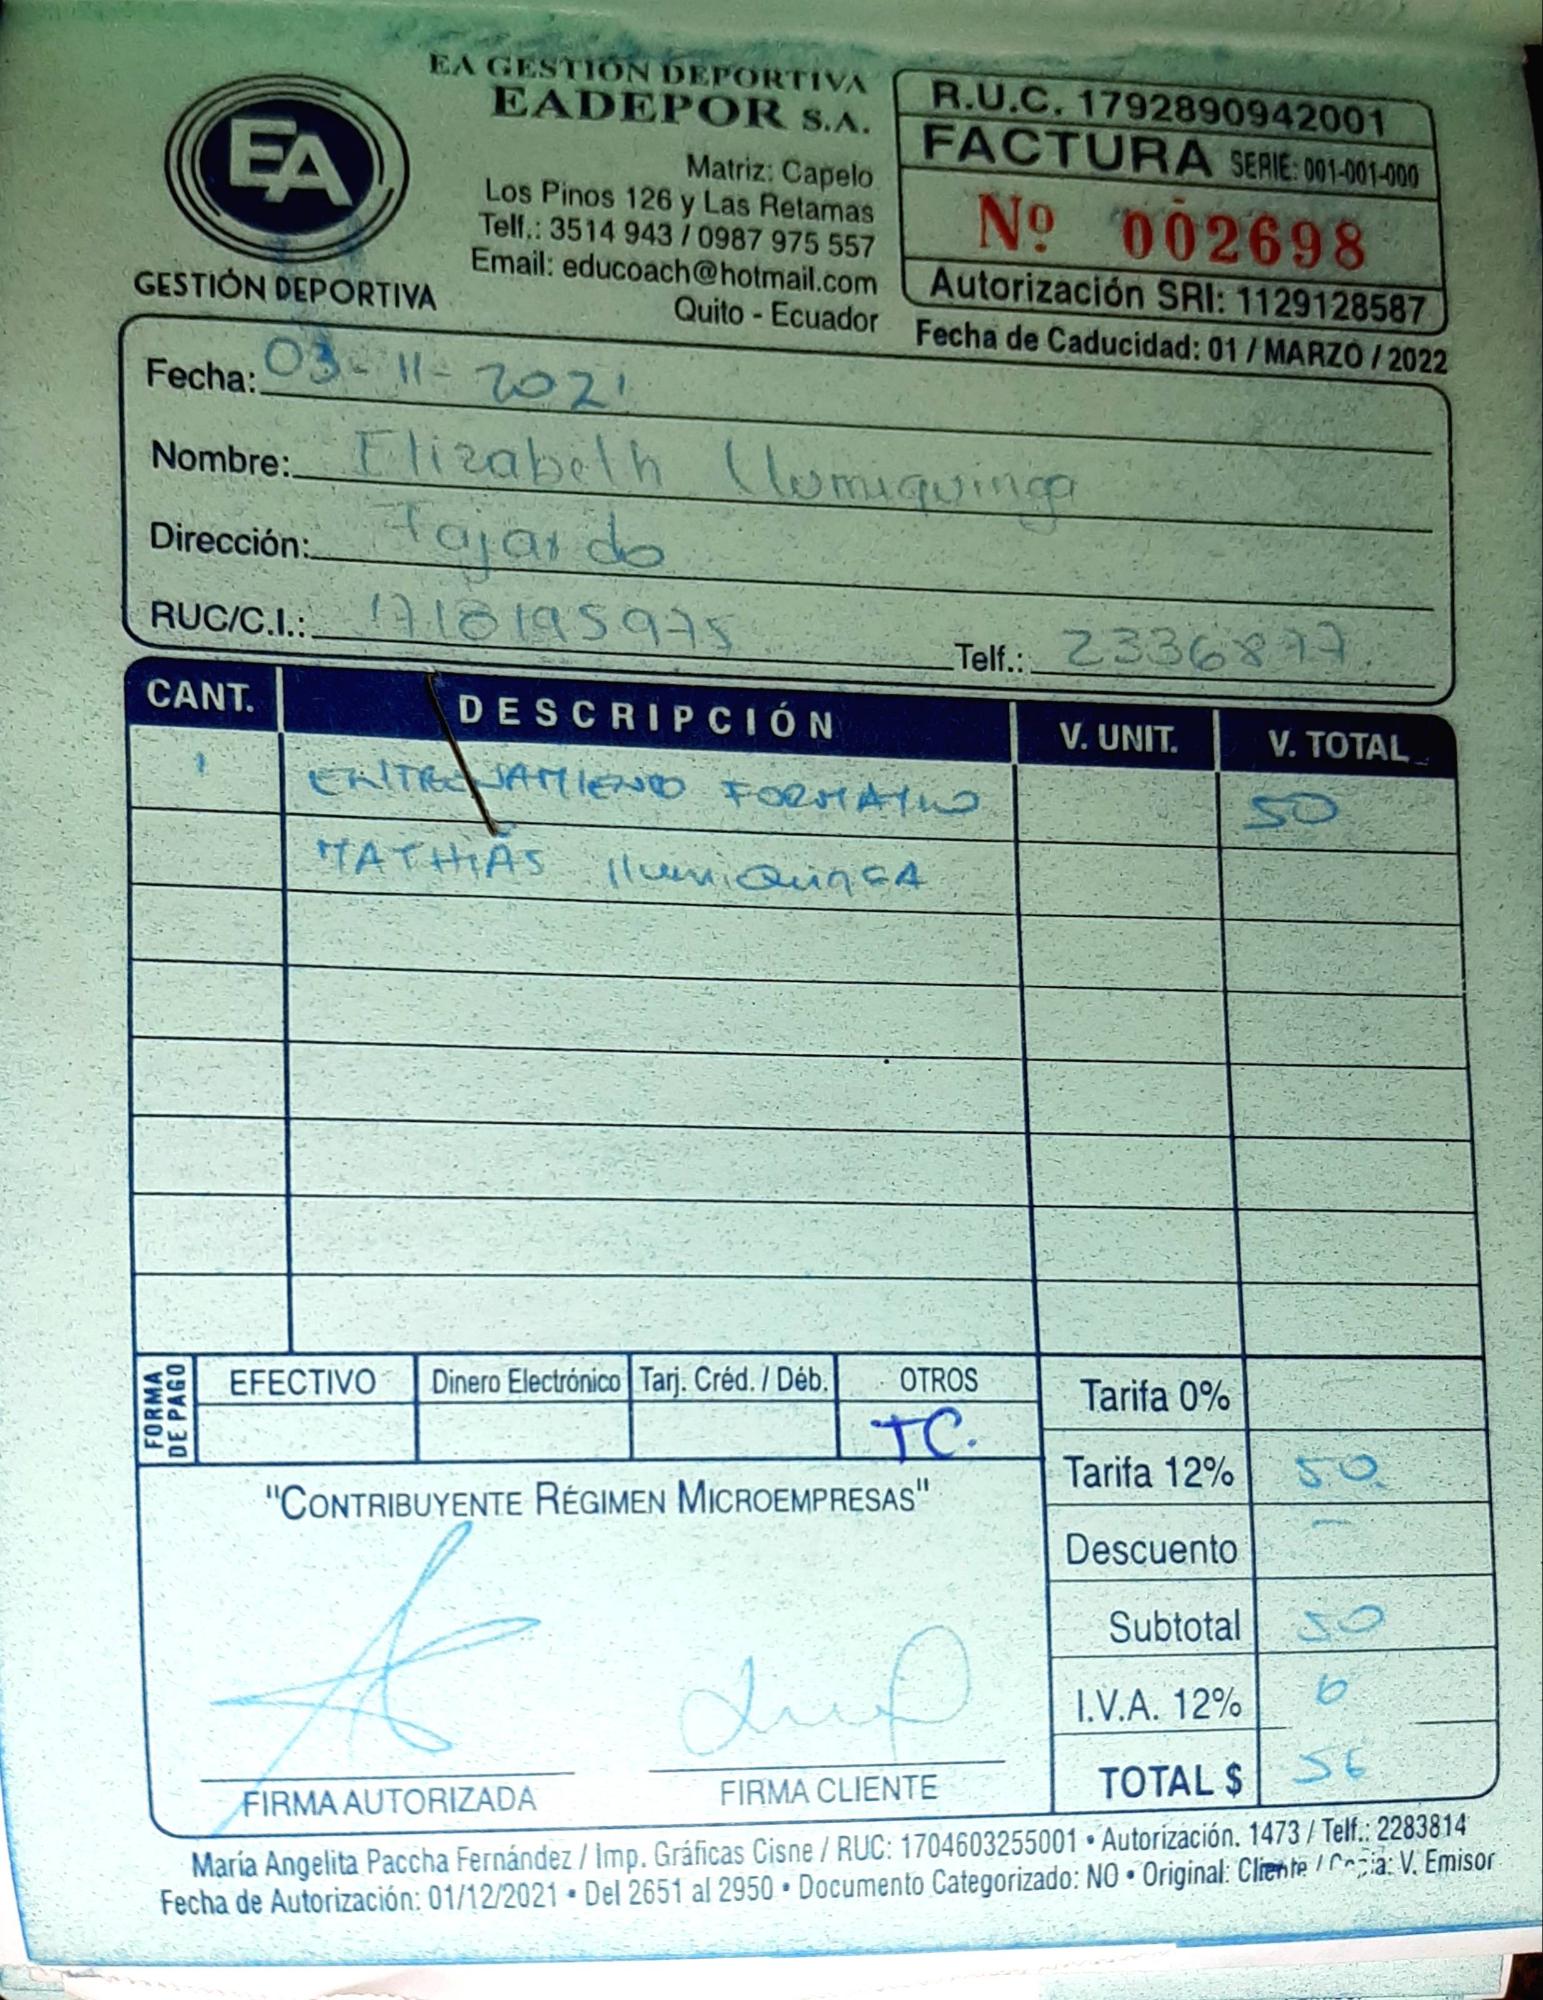 EA
GESTIÓN DEPORTIVA
EA GESTIÓN DEPORTIVA
EADEPOR S.A.
Matriz: Capelo
Los Pinos 126 y Las Retamas
Telf.: 3514 943 / 0987 975 557
Email: educoach@hotmail.com
Quito - Ecuador
R.U.C. 1792890942001
FACTURA SERIE: 001-001-000
Nº 002698
Autorización SRI: 1129128587
Fecha de Caducidad: 01 / MARZO / 2022
Fecha: 03-11-2021
Nombre: Elizabeth Llumiquinga
Dirección: Fajardo
RUC/C.I.: 1718195975 Telf.: 2336877
CANT. DESCRIPCIÓN V. UNIT. V. TOTAL
1 ENTRENAMIENTO FORMATIVO 50
MATHIAS llumiquinga
FORMA DE PAGO EFECTIVO Dinero Electrónico Tarj. Créd. / Déb. OTROS
TC.
Tarifa 0%
Tarifa 12% 50
Descuento —
Subtotal 50
I.V.A. 12% 6
TOTAL $ 56
"CONTRIBUYENTE RÉGIMEN MICROEMPRESAS"
FIRMA AUTORIZADA FIRMA CLIENTE
María Angelita Paccha Fernández / Imp. Gráficas Cisne / RUC: 1704603255001 • Autorización. 1473 / Telf.: 2283814
Fecha de Autorización: 01/12/2021 • Del 2651 al 2950 • Documento Categorizado: NO • Original: Cliente / Copia: V. Emisor